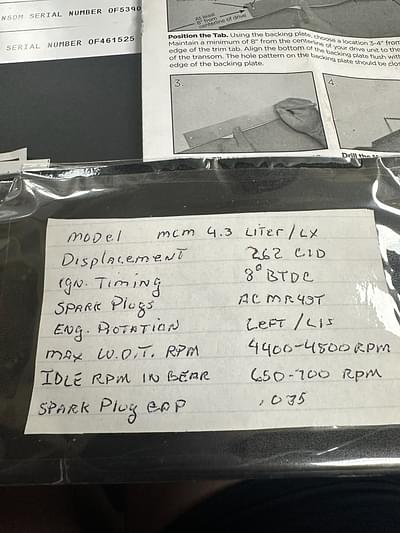 NSOM SERIAL NUMBER 0F5390
SERIAL NUMBER 0F461525
8" from
centerline of drive
Position the Tab. Using the backing plate, choose a location 3-4" from
Maintain a minimum of 8" from the centerline of your drive unit to the
edge of the trim tab. Align the bottom of the backing plate flush with
of the transom. The hole pattern on the backing plate should be clos
edge of the backing plate.
3.
4.
Drill the
MODEL MCM 4.3 LITER/LX
DISPLACEMENT 262 CID
IGN. TIMING 8° BTDC
SPARK PLUGS AC MR43T
ENG. ROTATION LEFT /
MAX W.O.T. RPM 4400-4800 RPM
IDLE RPM IN GEAR 650-700 RPM
SPARK PLUG GAP .035